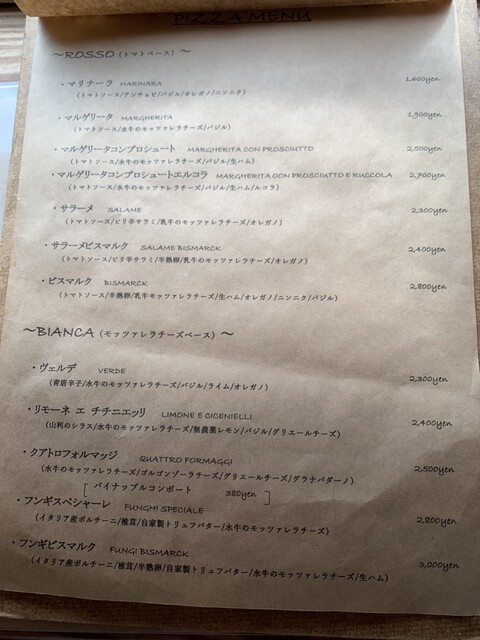 PIZZA MENU
～ROSSO（トマトベース）～
・マリナーラ MARINARA 1,600yen
（トマトソース/アンチョビ/バジル/オレガノ/ニンニク）
・マルゲリータ MARGHERITA 1,900yen
（トマトソース/水牛のモッツァレラチーズ/バジル）
・マルゲリータコンプロシュート MARGHERITA CON PROSCIUTTO 2,500yen
（トマトソース/水牛のモッツァレラチーズ/バジル/生ハム）
・マルゲリータコンプロシュートエルコラ MARGHERITA CON PROSCIUTTO E RUCCOLA 2,700yen
（トマトソース/水牛のモッツァレラチーズ/バジル/生ハム/ルコラ）
・サラーメ SALAME 2,300yen
（トマトソース/ピリ辛サラミ/乳牛のモッツァレラチーズ/オレガノ）
・サラーメビスマルク SALAME BISMARCK 2,400yen
（トマトソース/ピリ辛サラミ/半熟卵/乳牛のモッツァレラチーズ/オレガノ）
・ビスマルク BISMARCK 2,800yen
（トマトソース/半熟卵/乳牛モッツァレラチーズ/生ハム/オレガノ/ニンニク/バジル）
～BIANCA（モッツァレラチーズベース）～
・ヴェルデ VERDE 2,300yen
（青唐辛子/水牛のモッツァレラチーズ/バジル/ライム/オレガノ）
・リモーネ エ チチニエッリ LIMONE E CICENIELLI 2,400yen
（山利のシラス/水牛のモッツァレラチーズ/無農薬レモン/バジル/グリエールチーズ）
・クアトロフォルマッジ QUATTRO FORMAGGI 2,500yen
（水牛のモッツァレラチーズ/ゴルゴンゾーラチーズ/グリエールチーズ/グラナパダーノ）
［パイナップルコンポート 380yen］
・フンギスペシャーレ FUNGHI SPECIALE 2,800yen
（イタリア産ポルチーニ/椎茸/自家製トリュフバター/水牛のモッツァレラチーズ）
・フンギビスマルク FUNGI BISMARCK 3,000yen
（イタリア産ポルチーニ/椎茸/半熟卵/自家製トリュフバター/水牛のモッツァレラチーズ/生ハム）